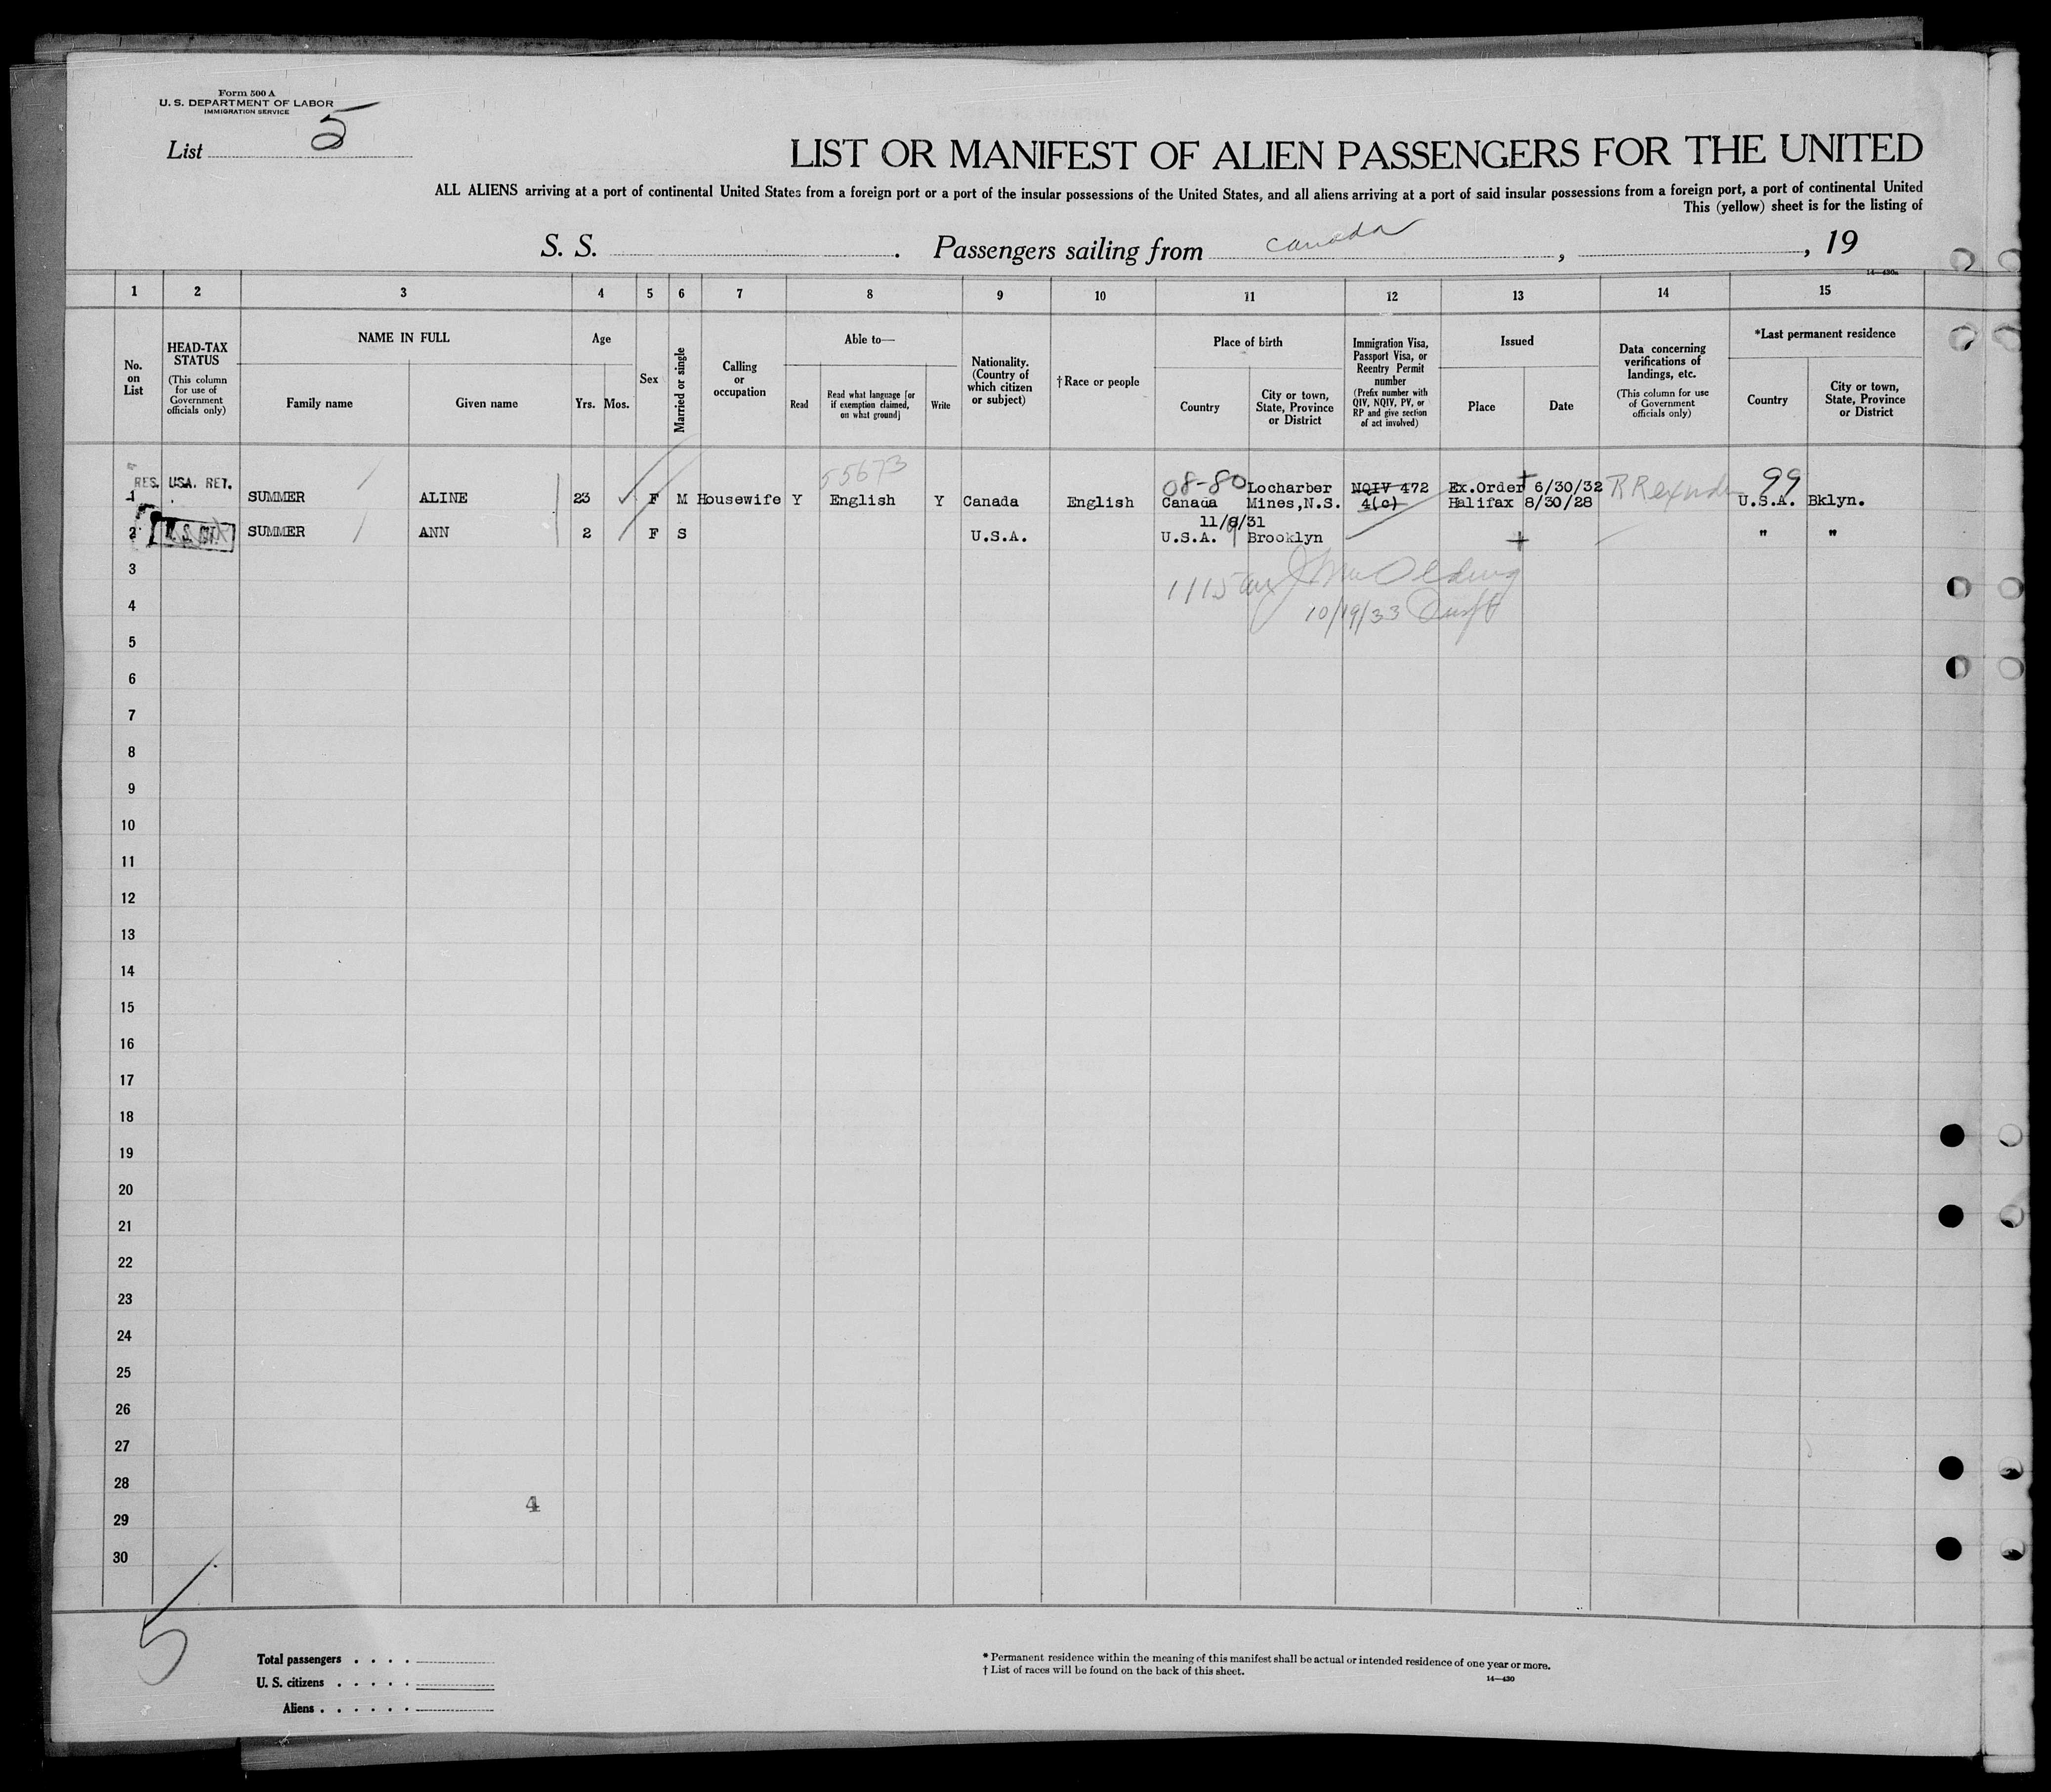 Form 500 A
U. S. DEPARTMENT OF LABOR
IMMIGRATION SERVICE
List 5
LIST OR MANIFEST OF ALIEN PASSENGERS FOR THE UNITED
ALL ALIENS arriving at a port of continental United States from a foreign port or a port of the insular possessions of the United States, and all aliens arriving at a port of said insular possessions from a foreign port, a port of continental United
This (yellow) sheet is for the listing of
S. S. . Passengers sailing from Canada , , 19
14—430a
1 2 3 4 5 6 7 8 9 10 11 12 13 14 15
No. on List
HEAD-TAX STATUS
(This column for use of Government officials only)
NAME IN FULL
Family name Given name
Age
Yrs. Mos.
Sex
Married or single
Calling or occupation
Able to—
Read
Read what language [or if exemption claimed, on what ground]
Write
Nationality. (Country of which citizen or subject)
†Race or people
Place of birth
Country
City or town, State, Province or District
Immigration Visa, Passport Visa, or Reentry Permit number
(Prefix number with QIV, NQIV, PV, or RP and give section of act involved)
Issued
Place Date
Data concerning verifications of landings, etc.
(This column for use of Government officials only)
*Last permanent residence
Country
City or town, State, Province or District
55673
RES. USA. RET. 08-80 Locharber NQIV 472 Ex.Order 6/30/32 99
1 SUMMER ALINE 23 F M Housewife Y English Y Canada English Canada Mines,N.S. 4(c) Halifax 8/30/28 U.S.A. Bklyn.
11/9/31
2 U.S. CIT. SUMMER ANN 2 F S U.S.A. U.S.A. Brooklyn " "
3
1115
4
10/19/33
5
6
7
8
9
10
11
12
13
14
15
16
17
18
19
20
21
22
23
24
25
26
27
28
4
29
30
5
Total passengers . . . .
U. S. citizens . . . . .
Aliens . . . . . .
* Permanent residence within the meaning of this manifest shall be actual or intended residence of one year or more.
† List of races will be found on the back of this sheet.
14—430